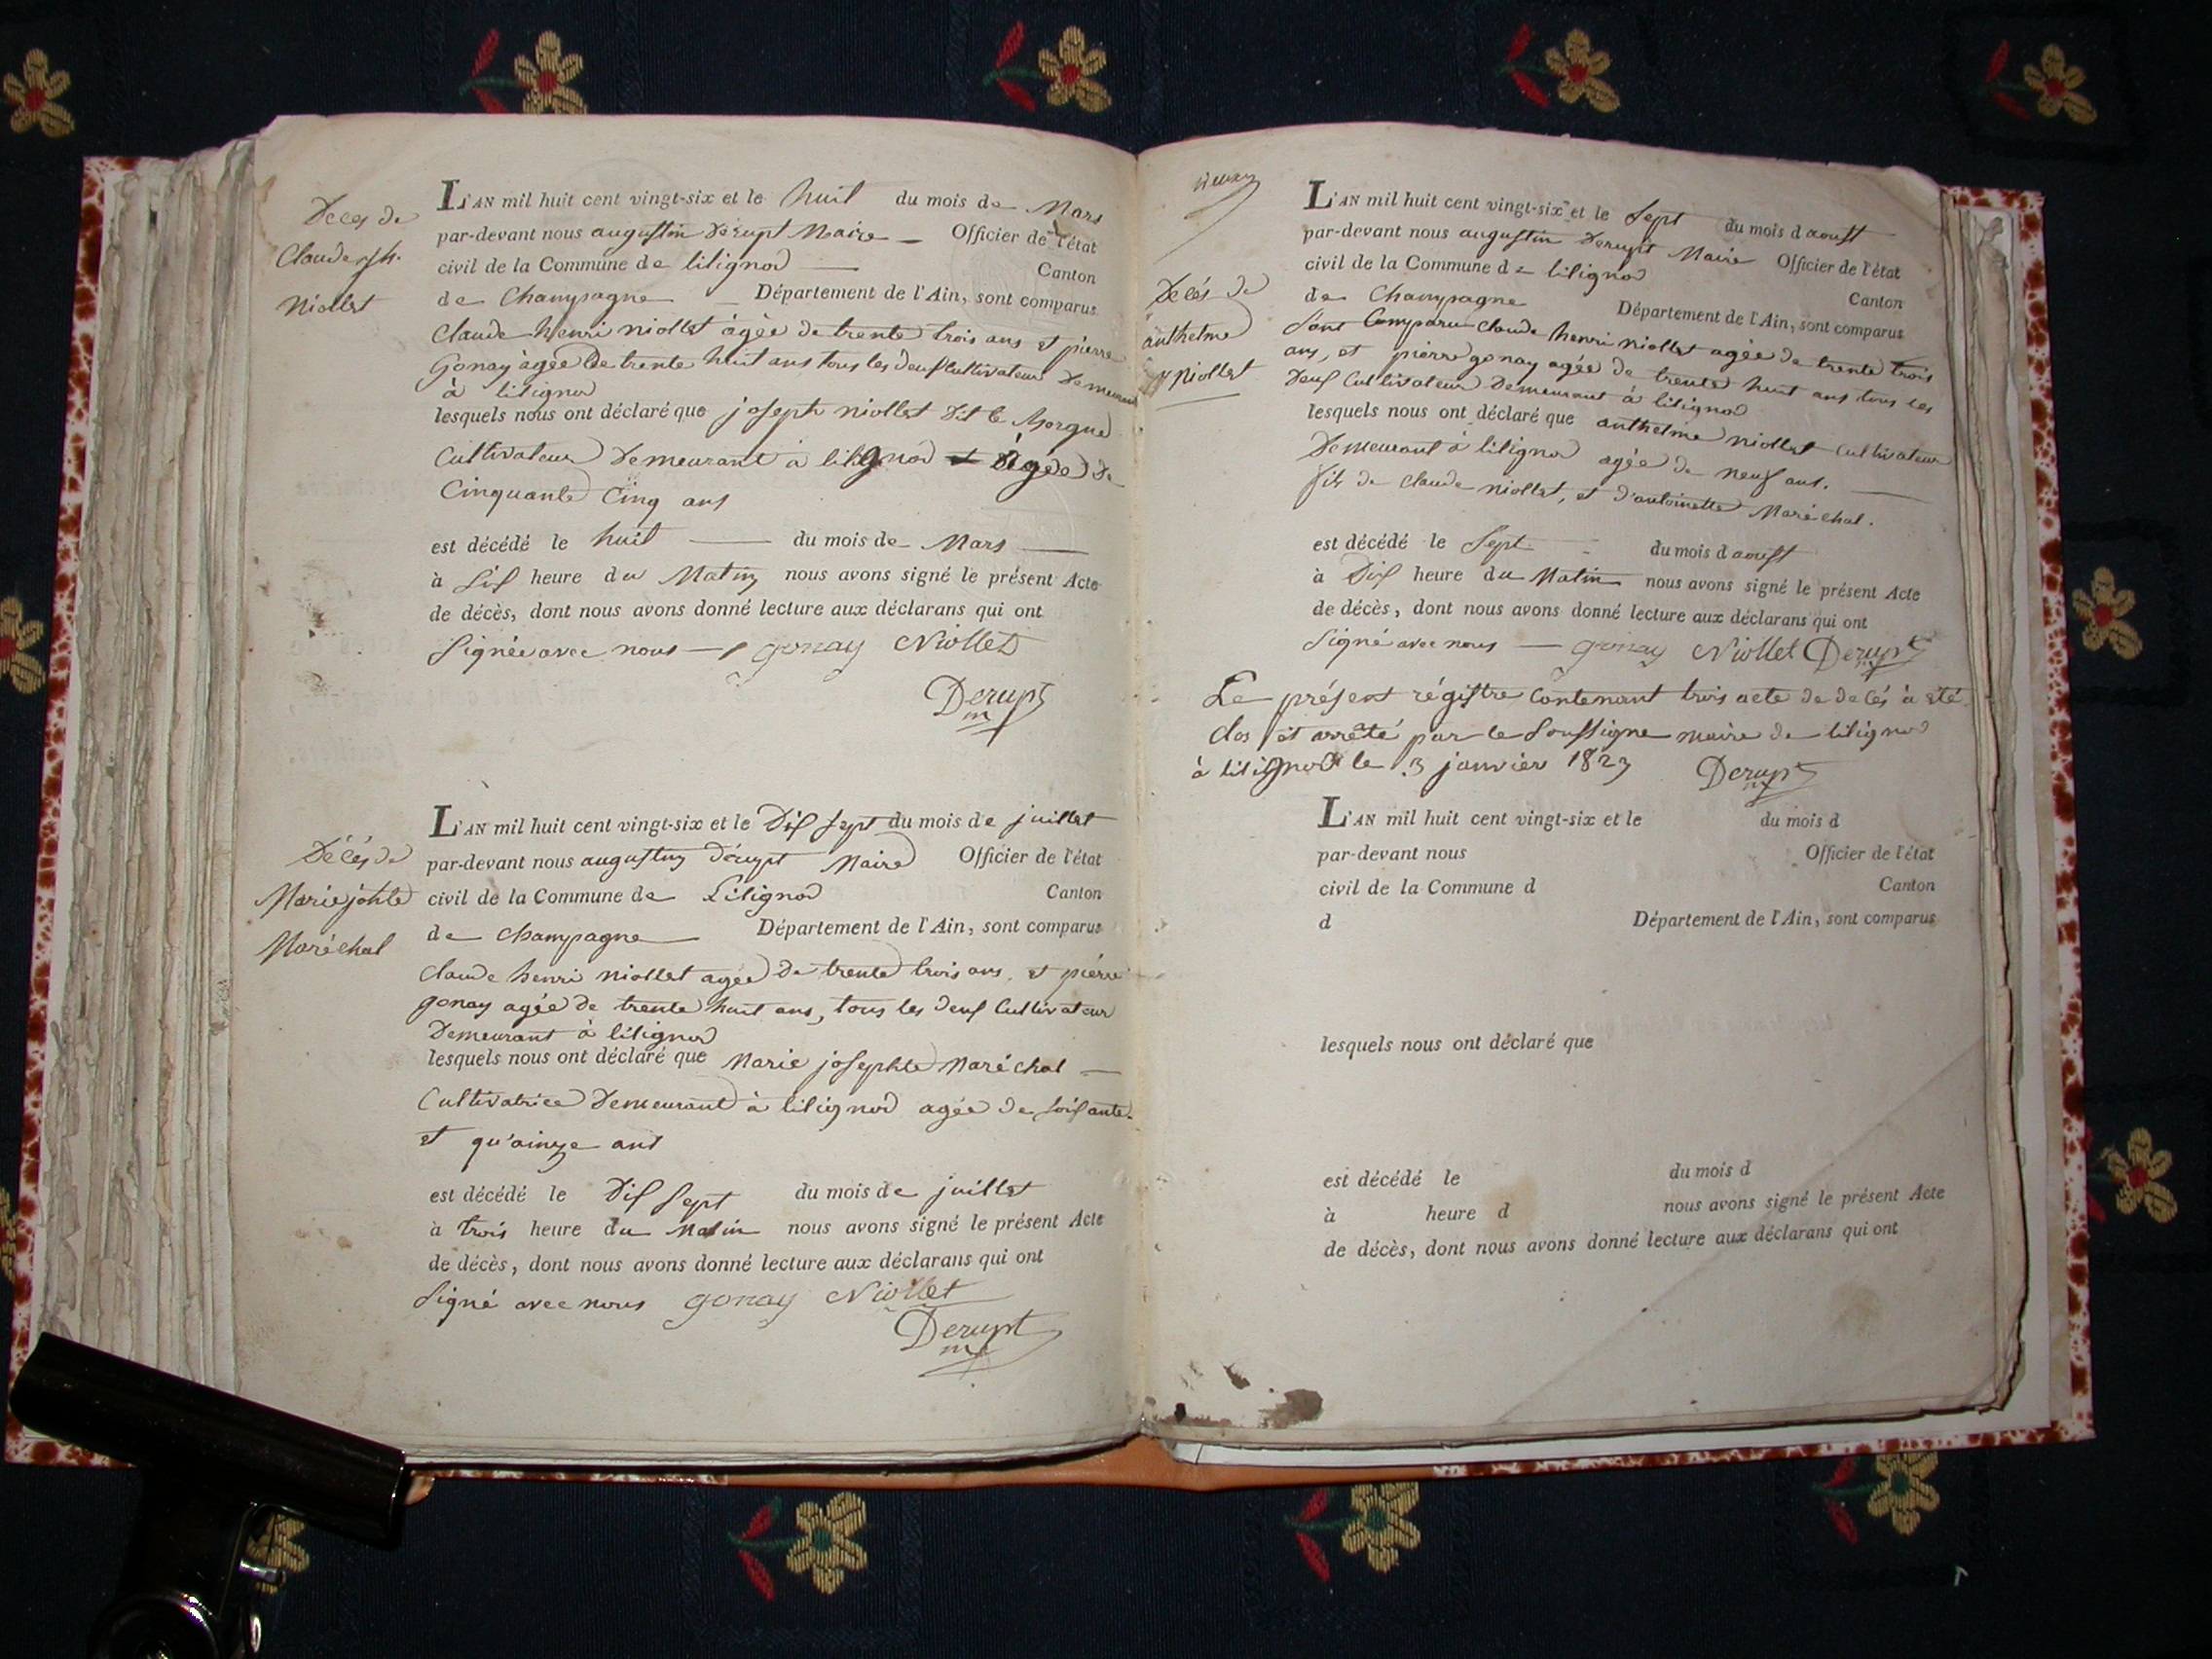 Déces de
Claude jph.
Niollet
L'AN mil huit cent vingt-six et le huit du mois de Mars
par-devant nous augustin Dérupt Maire Officier de l'état
civil de la Commune de lilignod Canton
de Champagne Département de l'Ain, sont comparus
Claude henri niollet âgée de trente trois ans et pierre
Gonay âgée de trente huit ans tous les deuf Cultivateur Demeurant
à lilignod
lesquels nous ont déclaré que joseph niollet dit le
Cultivateur Demeurant à lilignod et âgée de
Cinquante Cinq ans
est décédé le huit du mois de Mars
à Sif heure du Matin nous avons signé le présent Acte
de décès, dont nous avons donné lecture aux déclarans qui ont
Signée avec nous gonay Niollet
Derupt
m
L'AN mil huit cent vingt-six et le Dif sept du mois de juillet
Décés de
par-devant nous augustin dérupt Maire Officier de l'état
Marie jophte
civil de la Commune de Lilignod Canton
Maréchal
de Champagne Département de l'Ain, sont comparus
Claude henri niollet agée de trente trois ans, et piérre
gonay agée de trente huit ans, tous les deuf Cultivateur
Demeurant à lilignod
lesquels nous ont déclaré que Marie josephte Maréchal
Cultivatrice Demeurant à lilignod agée de soifante
et qu'ainze ans
est décédé le Dif sept du mois de juillet
à trois heure du Matin nous avons signé le présent Acte
de décès, dont nous avons donné lecture aux déclarans qui ont
Signé avec nous gonay Niollet
Derupt
m
L'AN mil huit cent vingt-six et le Sept du mois d aoust
par-devant nous augustin Derupt Maire Officier de l'état
civil de la Commune de lilignod Canton
Décés de
anthelme
niollet
de Champagne Département de l'Ain, sont comparus
Sont Comparu claude henri niollet agée de trente trois
ans, et piérre gonay agée de trente huit ans tous les
deuf Cultivateur Demeurant à lilignod
lesquels nous ont déclaré que anthelme niollet Cultivateur
Demeurant à lilignod agée de neuf ans.
fils de claude niollet, et d'antoinette Maréchal.
est décédé le Sept du mois d aoust
à Dif heure du Matin nous avons signé le présent Acte
de décès, dont nous avons donné lecture aux déclarans qui ont
Signé avec nous gonay Niollet Derupt
Le présent régistre Contenant trois acte de décés à été
clos et arrêté par le Soussigne maire de lilignod
à lilignod le 3 janvier 1827 Derupt
L'AN mil huit cent vingt-six et le du mois d
par-devant nous Officier de l'état
civil de la Commune d Canton
d Département de l'Ain, sont comparus
lesquels nous ont déclaré que
est décédé le du mois d
à heure d nous avons signé le présent Acte
de décès, dont nous avons donné lecture aux déclarans qui ont